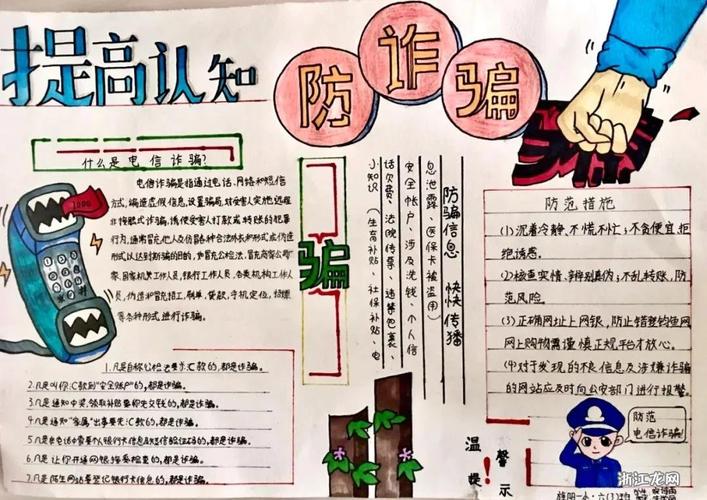 提高认知
防诈骗
什么是电信诈骗?
电信诈骗是指通过电话、网络和短信
方式,编造虚假信息,设置骗局,对受害人实施远程
非接触式诈骗,诱使受害人打款或转账的犯罪
行为,通常冒充他人及仿冒各种合法外衣和形式或伪造
形式以达到欺骗的目的,如冒充公检法、冒充商家公司厂
家、国家机关工作人员,银行工作人员,各类机构工作人
员,伪造和冒充招工、刷单、贷款、手机定位、招嫖
等各种形式进行诈骗。
骗
防骗信息 快快传播
息泄露、医保卡被盗用)
安全帐户、涉及洗钱、个人信
话欠费、法院传票、违禁包裹、
小知识(生育补贴、社保补贴、电
防范措施
(1)沉着冷静,不慌不忙;不贪便宜,拒
绝诱惑。
(2)核查实情,辨别真伪;不乱转账,防
范风险。
(3)正确网址上网银,防止错登钓鱼网
网上购物需谨慎正规平台才放心。
(4)对于发现的不良信息及涉嫌诈骗
的网站应及时向公安部门进行报警。
1.凡是自称公检法要求汇款的,都是诈骗。
2.凡是叫你汇款到"安全账户"的,都是诈骗。
3.凡是通知中奖,领取补贴要你先交钱的,都是诈骗。
4.凡是通知"家属"出事要先汇款的,都是诈骗。
5.凡是在电话中索要个人银行卡信息及短信验证码的,都是诈骗。
6.凡是让你开通网银接受检查的,都是诈骗。
7.凡是陌生网站要登记银行卡信息的,都是诈骗。
温馨提示
!
防范
电信诈骗!
浙江龙网